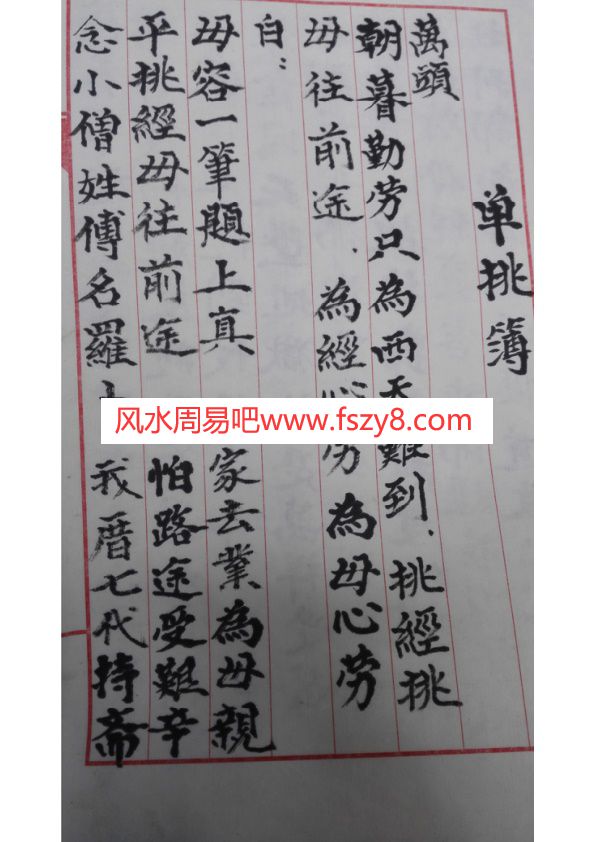 单挑簿
萬頭
朝暮勤劳只為西天難到．挑經挑
母往前途．為經心劳為母心劳
白：
母容一筆題上真 家去業為母親
平挑經母往前途 怕路途受難辛
念小僧姓傅名羅 我曆七代持斋
风水周易吧www.fszy8.com